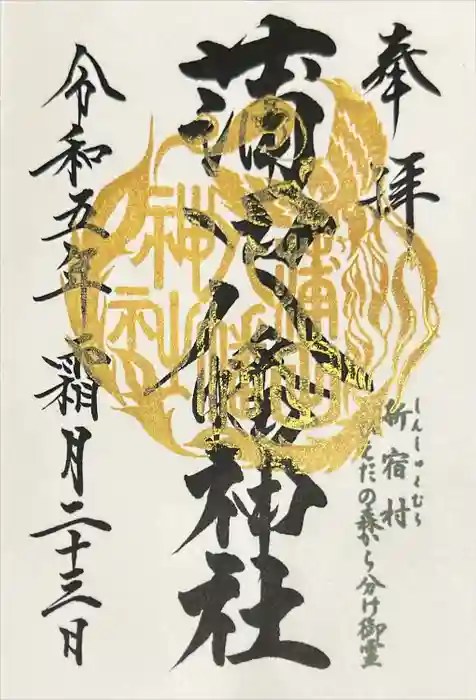 奉拝
蒲田八幡神社
令和五年 霜月二十三日
しんしゅくむら
新宿村
ひえだの森から分け御霊
蒲田
八幡
神社